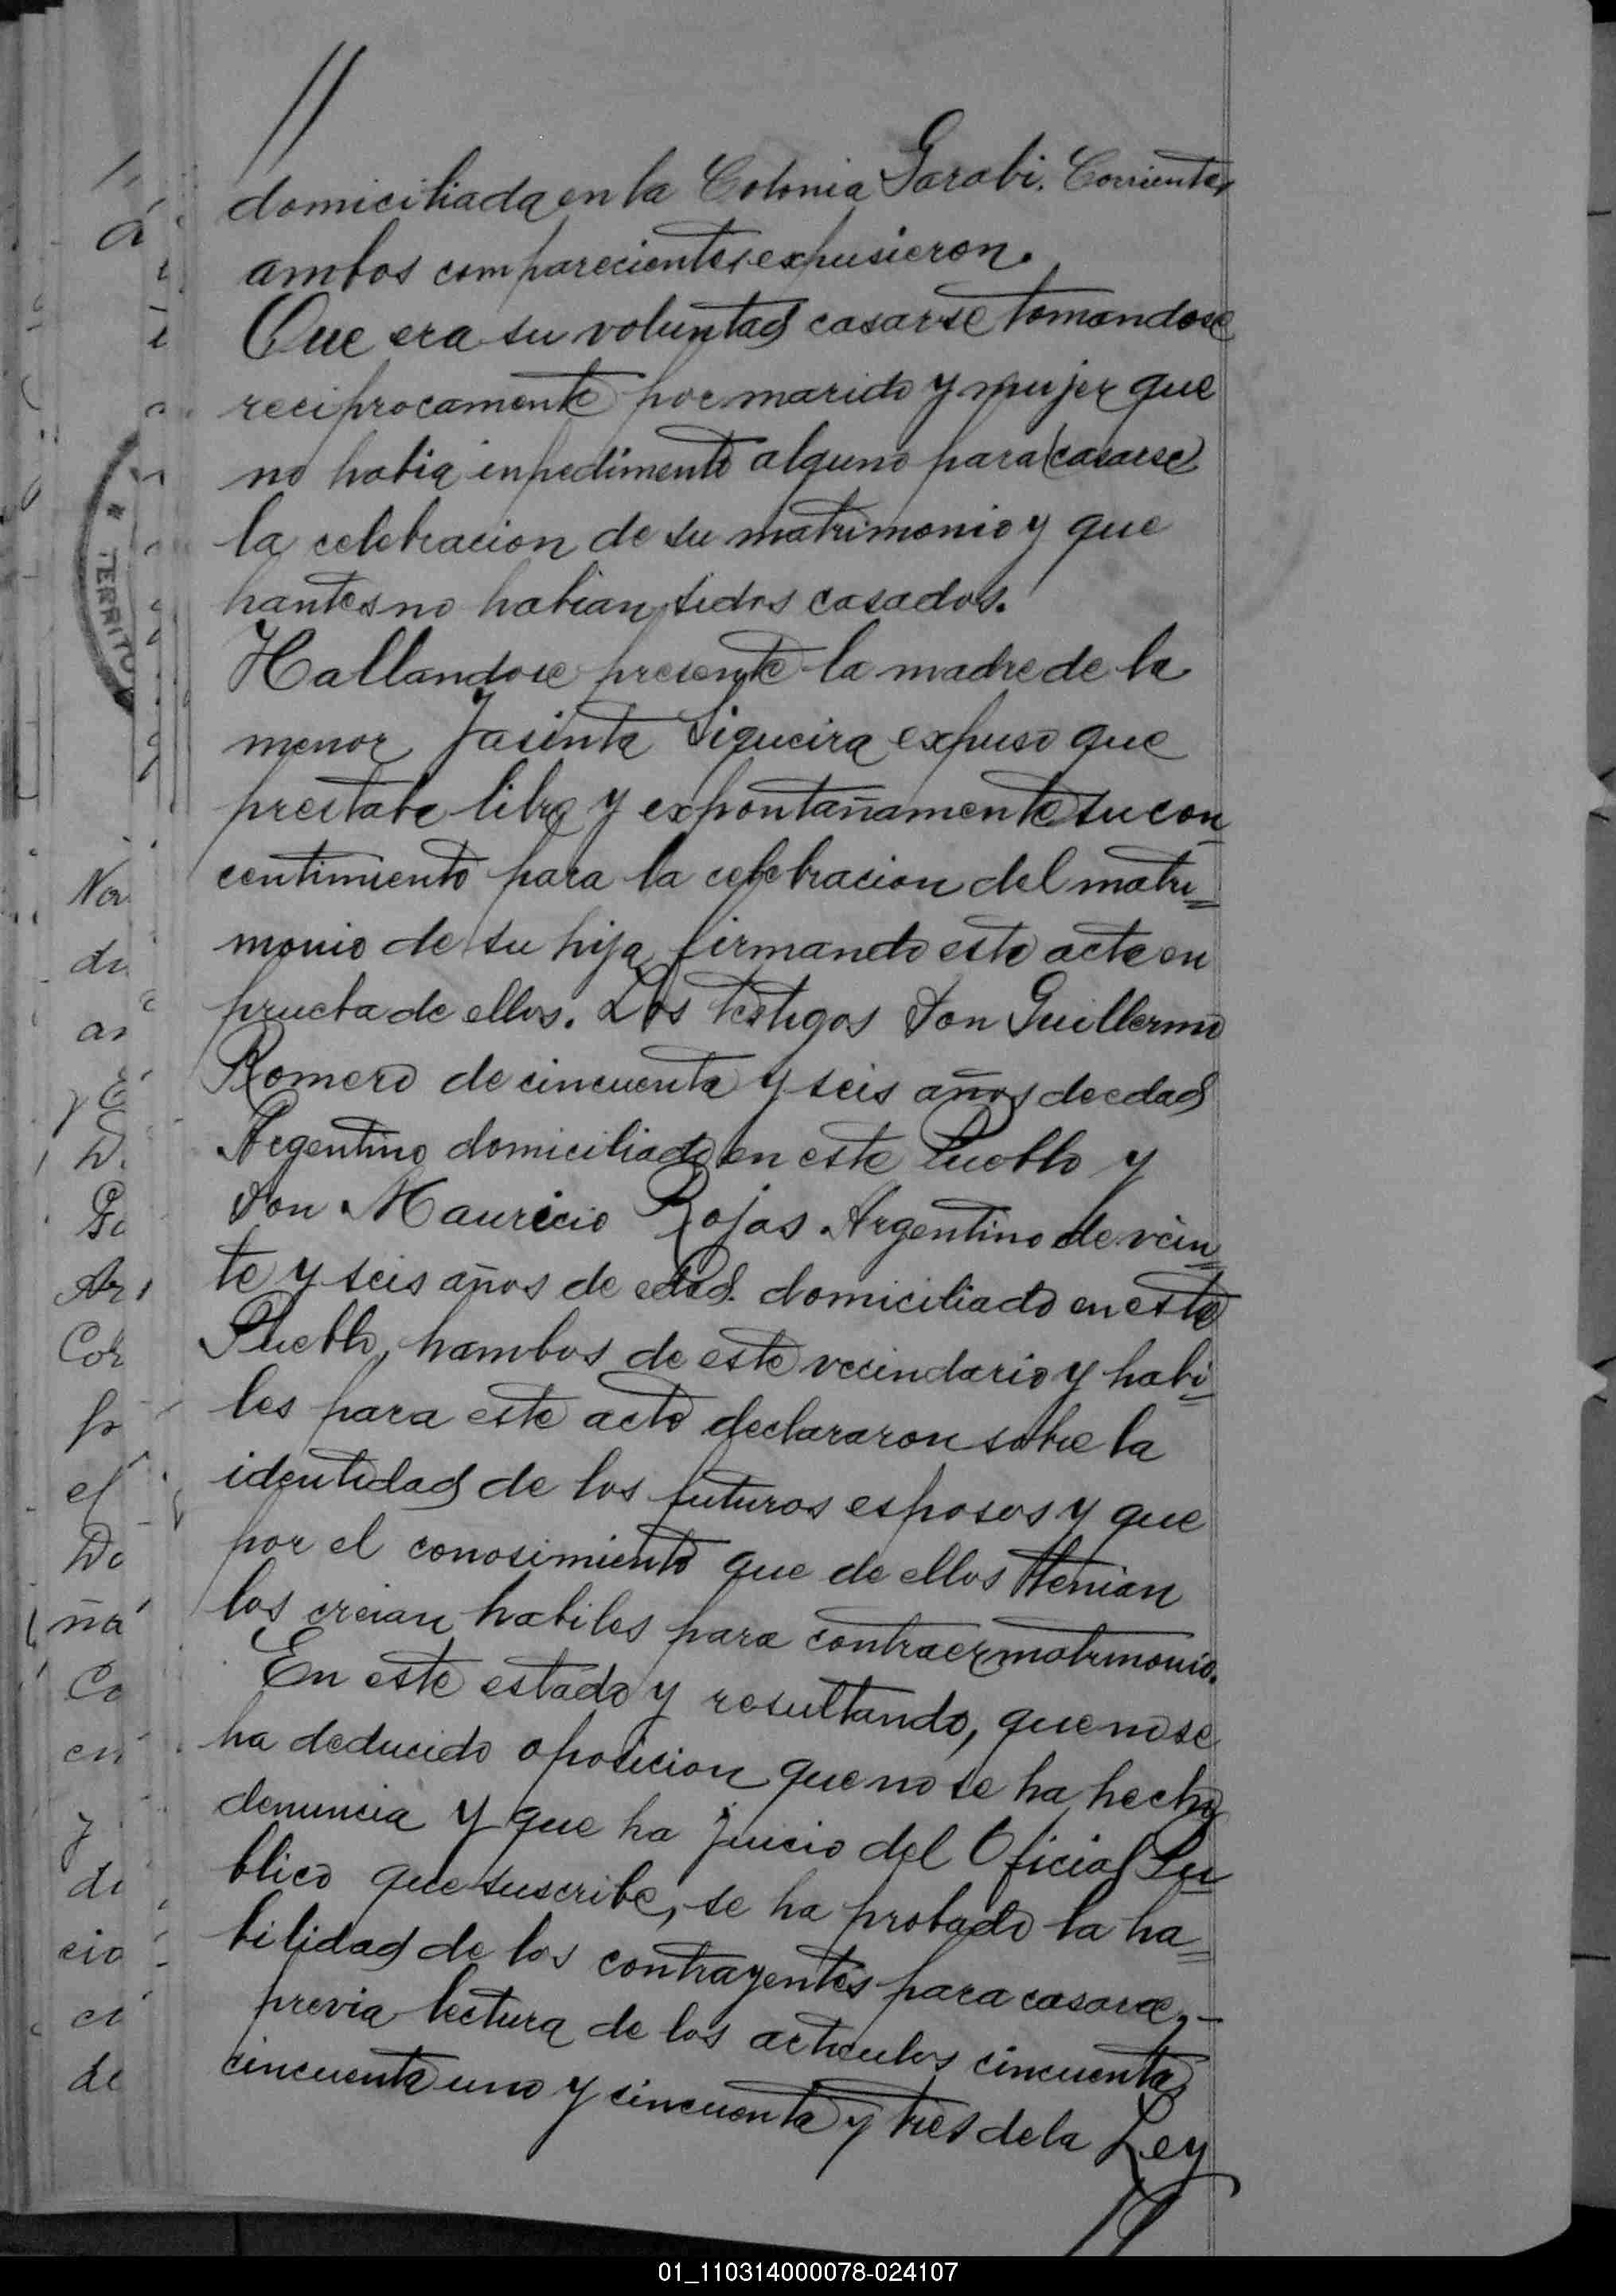 //
domiciliada en la Colonia Garabi. Corrientes
ambos comparecientes expusieron.
Que era su voluntad casarse tomandose
reciprocamente por marido y mujer que
no habia inpedimento alguno para (casarse)
la celebracion de su matrimonio y que
hantes no habian sidos casados.
Hallandose presente la madre de la
menor Jasinta Siqueira expuso que
prestaba libre y expontañamente su con
centimiento para la celebracion del matri=
monio de su hija firmando este acta en
prueba de ellos. Los testigos Don Guillermo
Romero de cincuenta y seis años de edad
Argentino domiciliado en este Pueblo y
Don Mauricio Rojas Argentino de vein=
te y seis años de edad. domiciliado en este
Pueblo, hambos de este vecindario y habi=
les para este acto declararon sobre la
identidad de los futuros esposos y que
por el conosimiento que de ellos tenian
los creian habiles para contraer matrimonio.
En este estado y resultando, que no se
ha deducido oposicion que no se ha hecho
denuncia y que ha juicio del Oficial Pu
blico que suscribe, se ha probado la ha=
bilidad de los contrayentes para casarse,-
previa lectura de los articulos cincuenta
cincuenta uno y cincuenta y tres de la Ley
//
TERRITO
Nor
di
as
y E
D.
Po
Ar
Cor
p
el
Do
ña
Co
en
y
di
cio
ci
de
01_110314000078-024107